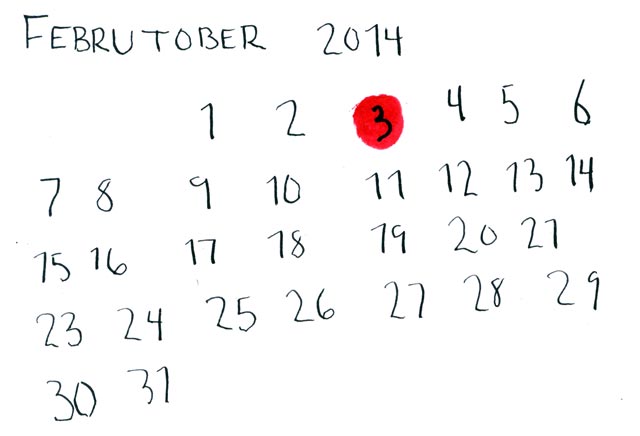 FEBRUTOBER 2014
1 2 3 4 5 6
7 8 9 10 11 12 13 14
15 16 17 18 19 20 21
23 24 25 26 27 28 29
30 31